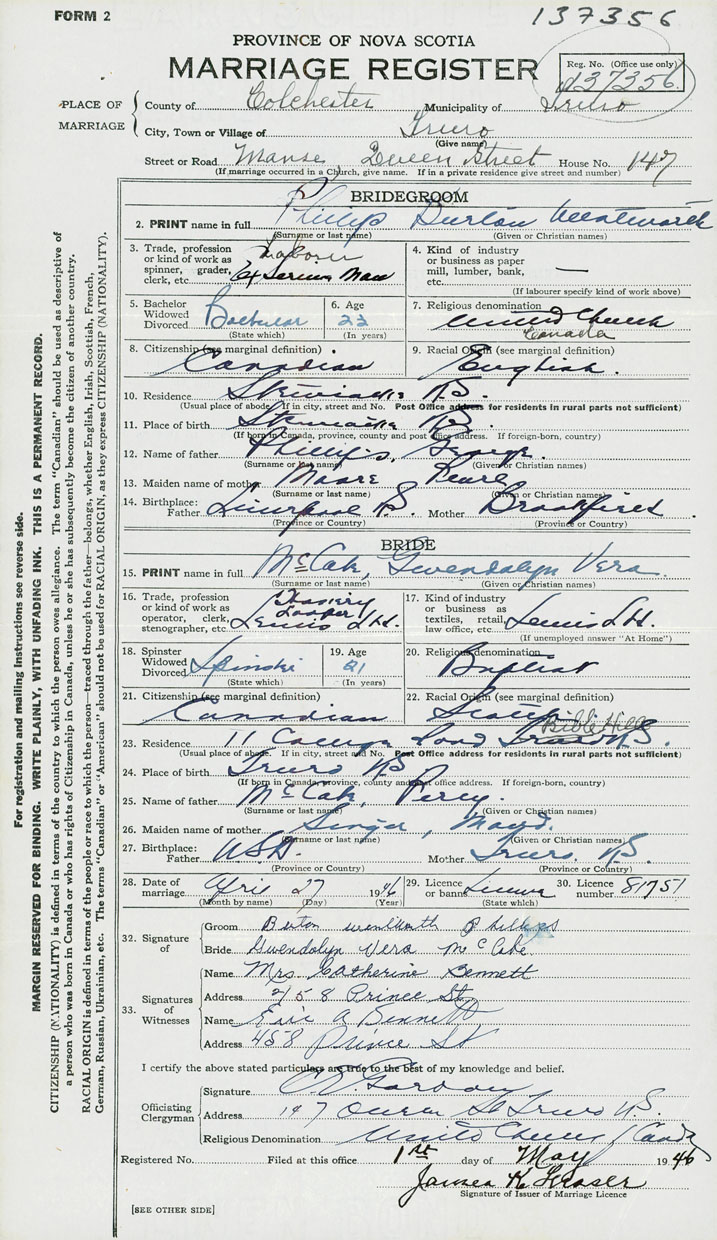 FORM 2
137356
PROVINCE OF NOVA SCOTIA
MARRIAGE REGISTER
Reg. No. (Office use only)
137356
PLACE OF MARRIAGE
County of Colchester Municipality of Truro
City, Town or Village of Truro
(Give name)
Street or Road Manse, Queen Street House No. 147
(If marriage occurred in a Church, give name. If in a private residence give street and number)
BRIDEGROOM
2. PRINT name in full Phillip Burton Wentworth
(Surname or last name) (Given or Christian names)
3. Trade, profession or kind of work as spinner, grader, clerk, etc. Laborer Ex Service Man
4. Kind of industry or business as paper mill, lumber, bank, etc. —
(If labourer specify kind of work above)
5. Bachelor Widowed Divorced Bachelor
(State which)
6. Age 22
(In years)
7. Religious denomination United Church Canada
8. Citizenship (see marginal definition) Canadian
9. Racial Origin (see marginal definition) English.
10. Residence Stewiacke N.S.
(Usual place of abode. If in city, street and No. Post Office address for residents in rural parts not sufficient)
11. Place of birth Stewiacke N.S.
(If born in Canada, province, county and post office address. If foreign-born, country)
12. Name of father Phillips, George.
(Surname or last name) (Given or Christian names)
13. Maiden name of mother Moore Pearl
(Surname or last name) (Given or Christian names)
14. Birthplace: Father Liverpool N.S. Mother Brookfield
(Province or Country) (Province or Country)
BRIDE
15. PRINT name in full McCabe, Gwendalyn Vera.
(Surname or last name) (Given or Christian names)
16. Trade, profession or kind of work as operator, clerk, stenographer, etc. Looper Lewis Ltd.
17. Kind of industry or business as textiles, retail, law office, etc. Lewis Ltd.
(If unemployed answer "At Home")
18. Spinster Widowed Divorced Spinster
(State which)
19. Age 21
(In years)
20. Religious denomination Baptist
21. Citizenship (see marginal definition) Canadian
22. Racial Origin (see marginal definition) Scotch
Bible Hill
23. Residence 11 College Road Truro N.S.
(Usual place of abode. If in city, street and No. Post Office address for residents in rural parts not sufficient)
24. Place of birth Truro N.S
(If born in Canada, province, county and post office address. If foreign-born, country)
25. Name of father McCabe, Percy.
(Surname or last name) (Given or Christian names)
26. Maiden name of mother , Maud.
(Surname or last name) (Given or Christian names)
27. Birthplace: Father U.S.A. Mother Truro. N.S.
(Province or Country) (Province or Country)
28. Date of marriage April 27 1946
(Month by name) (Day) (Year)
29. Licence or banns License
(State which)
30. Licence number 81751
32. Signature of
Groom Burton wentworth Phillips
Bride Gwendolyn Vera McCabe
33. Signatures of Witnesses
Name Mrs Catherine Bennett
Address 458 Prince St
Name Eric A Bennett
Address 458 Prince St
I certify the above stated particulars are true to the best of my knowledge and belief.
Officiating Clergyman
Signature Gordon
Address 147 Queen St Truro N.S.
Religious Denomination United Church / Canada
Registered No. Filed at this office 1st day of May 1946
James K Fraser
Signature of Issuer of Marriage Licence
[SEE OTHER SIDE]
For registration and mailing instructions see reverse side.
MARGIN RESERVED FOR BINDING. WRITE PLAINLY, WITH UNFADING INK. THIS IS A PERMANENT RECORD.
CITIZENSHIP (NATIONALITY) is defined in terms of the country to which the person owes allegiance. The term "Canadian" should be used as descriptive of
a person who was born in Canada or who has rights of Citizenship in Canada, unless he or she has subsequently become the citizen of another country.
RACIAL ORIGIN is defined in terms of the people or race to which the person—traced through the father—belongs, whether English, Irish, Scottish, French,
German, Russian, Ukrainian, etc. The terms "Canadian" or "American" should not be used for RACIAL ORIGIN, as they express CITIZENSHIP (NATIONALITY).